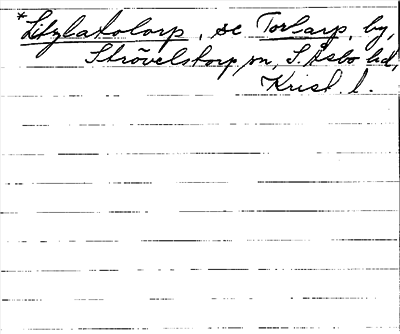 *Litzlatolarp, se Torlarp, by,
Strövelstorp sn, S. Åsbo hd,
Krist. l.